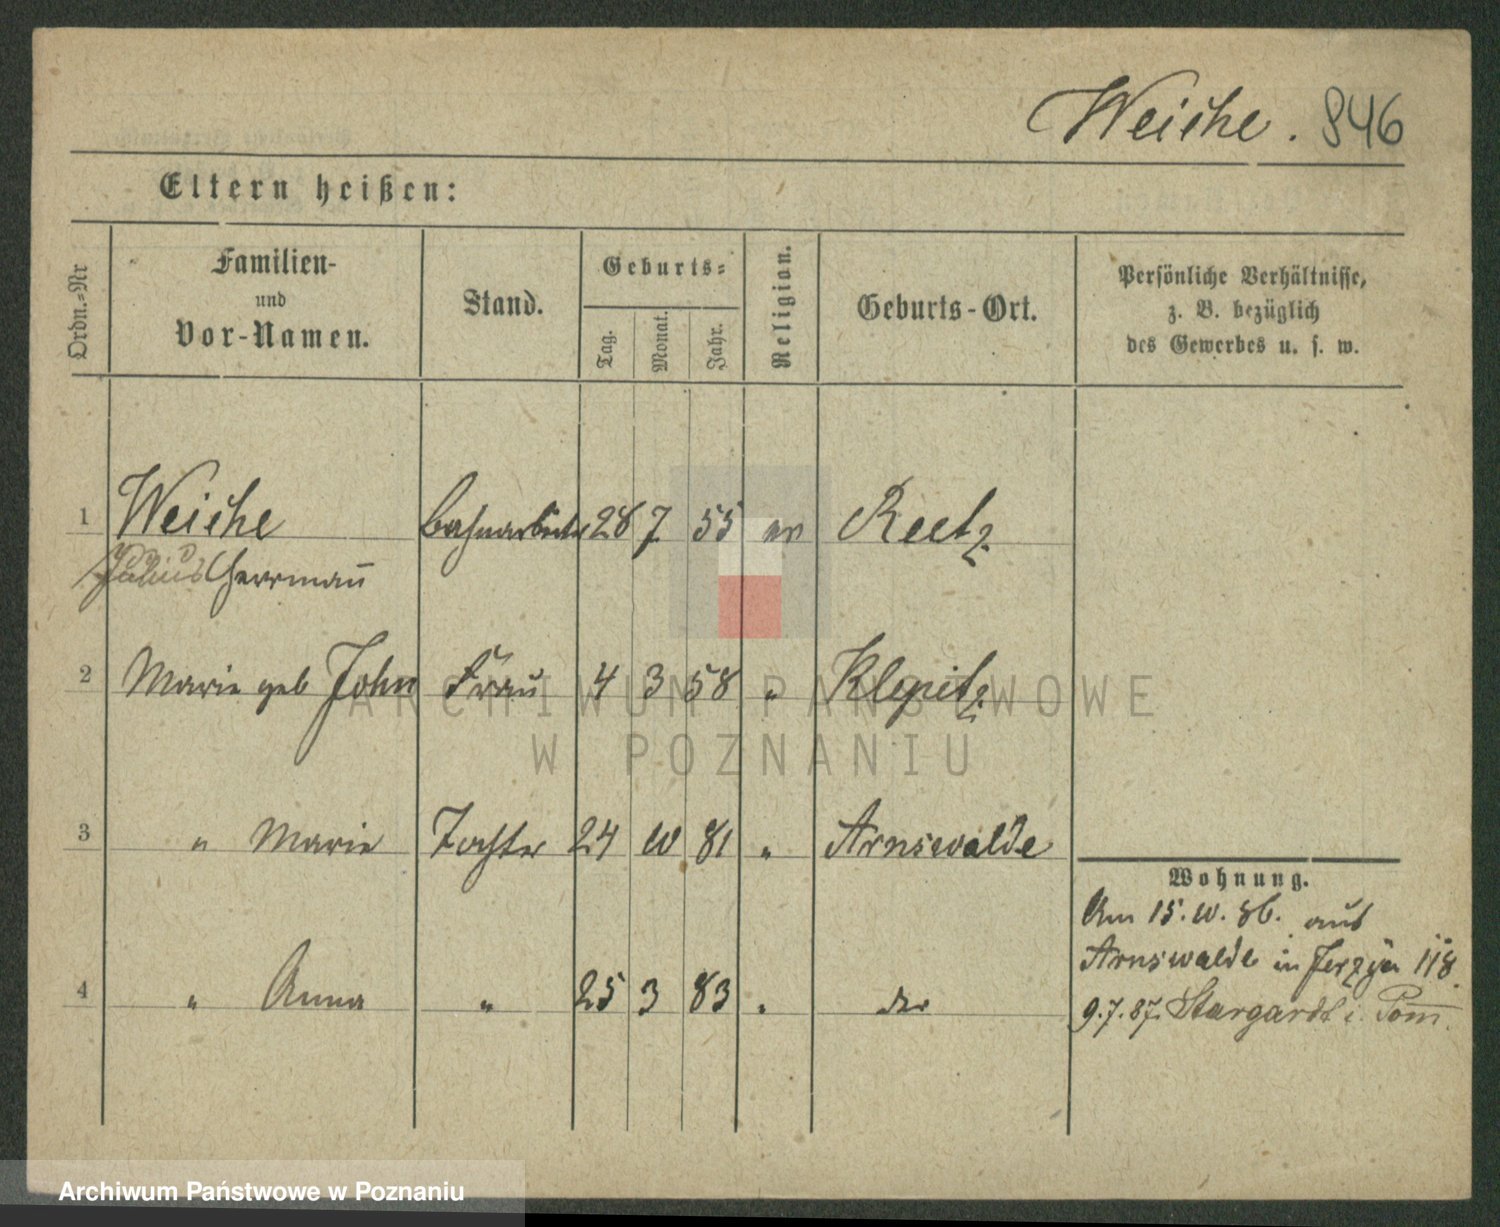 Weiche. 846
Eltern heißen:
Ordn.-Nr
Familien-
und
Vor-Namen.
Stand.
Geburts-
Tag.
Monat.
Jahr.
Religion.
Geburts-Ort.
Persönliche Verhältnisse,
z. B. bezüglich
des Gewerbes u. s. w.
1 Weiche Bahnarbeiter 28 7 55 ev Reetz
Julius Herrmann
2 Marie geb John Frau 4 3 58 " Klepitz
ARCHIWUM PAŃSTWOWE
W POZNANIU
3 " Marie Tochter 24 10 81 " Arnswalde
Wohnung.
Am 15. 10. 86. aus
Arnswalde in Jerzyce 118.
4 " Anna " 25 3 83 "
9.7.87. Stargardt i. Pom.
Archiwum Państwowe w Poznaniu